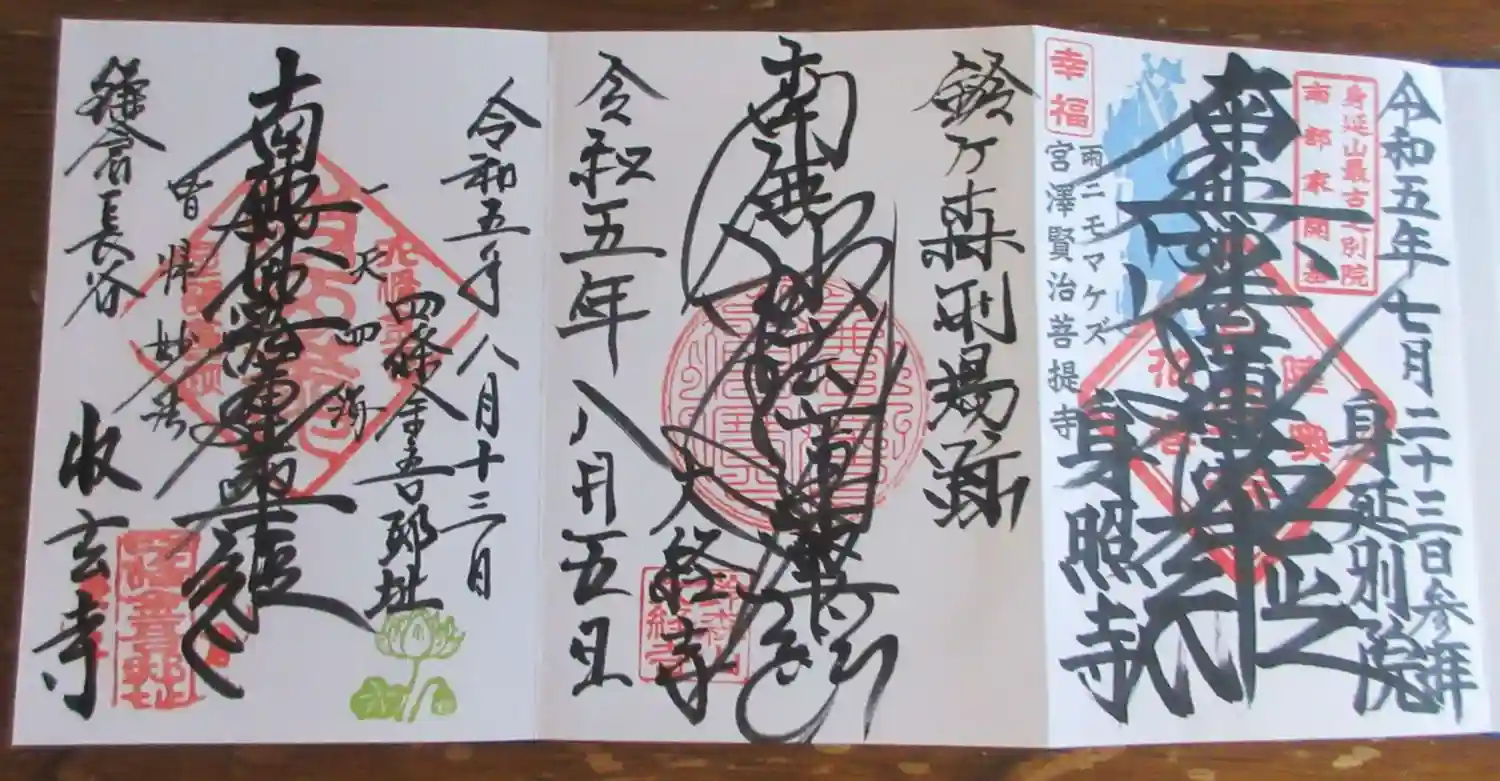 令和五年七月二十三日参拝
身延別院
身延山最古之別院
南部家開基
南無妙法蓮華経
幸福
雨ニモマケズ
宮澤賢治菩提寺
身照寺
鈴ヶ森刑場跡
南無妙法蓮華経
大経寺
令和五年八月五日
令和五年八月十三日
四條金吾邸址
一天四海
南無妙法蓮華経
皆帰妙法
鎌倉長谷
収玄寺